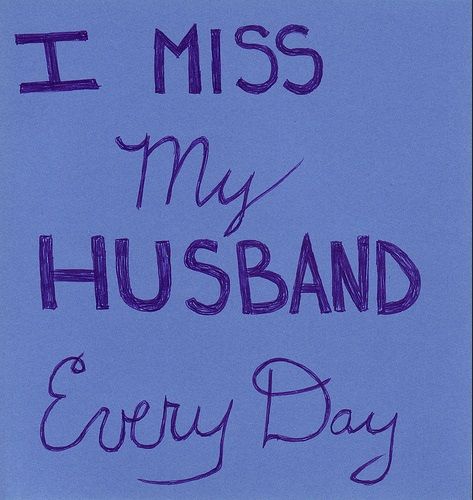 I MISS
My
HUSBAND
Every Day